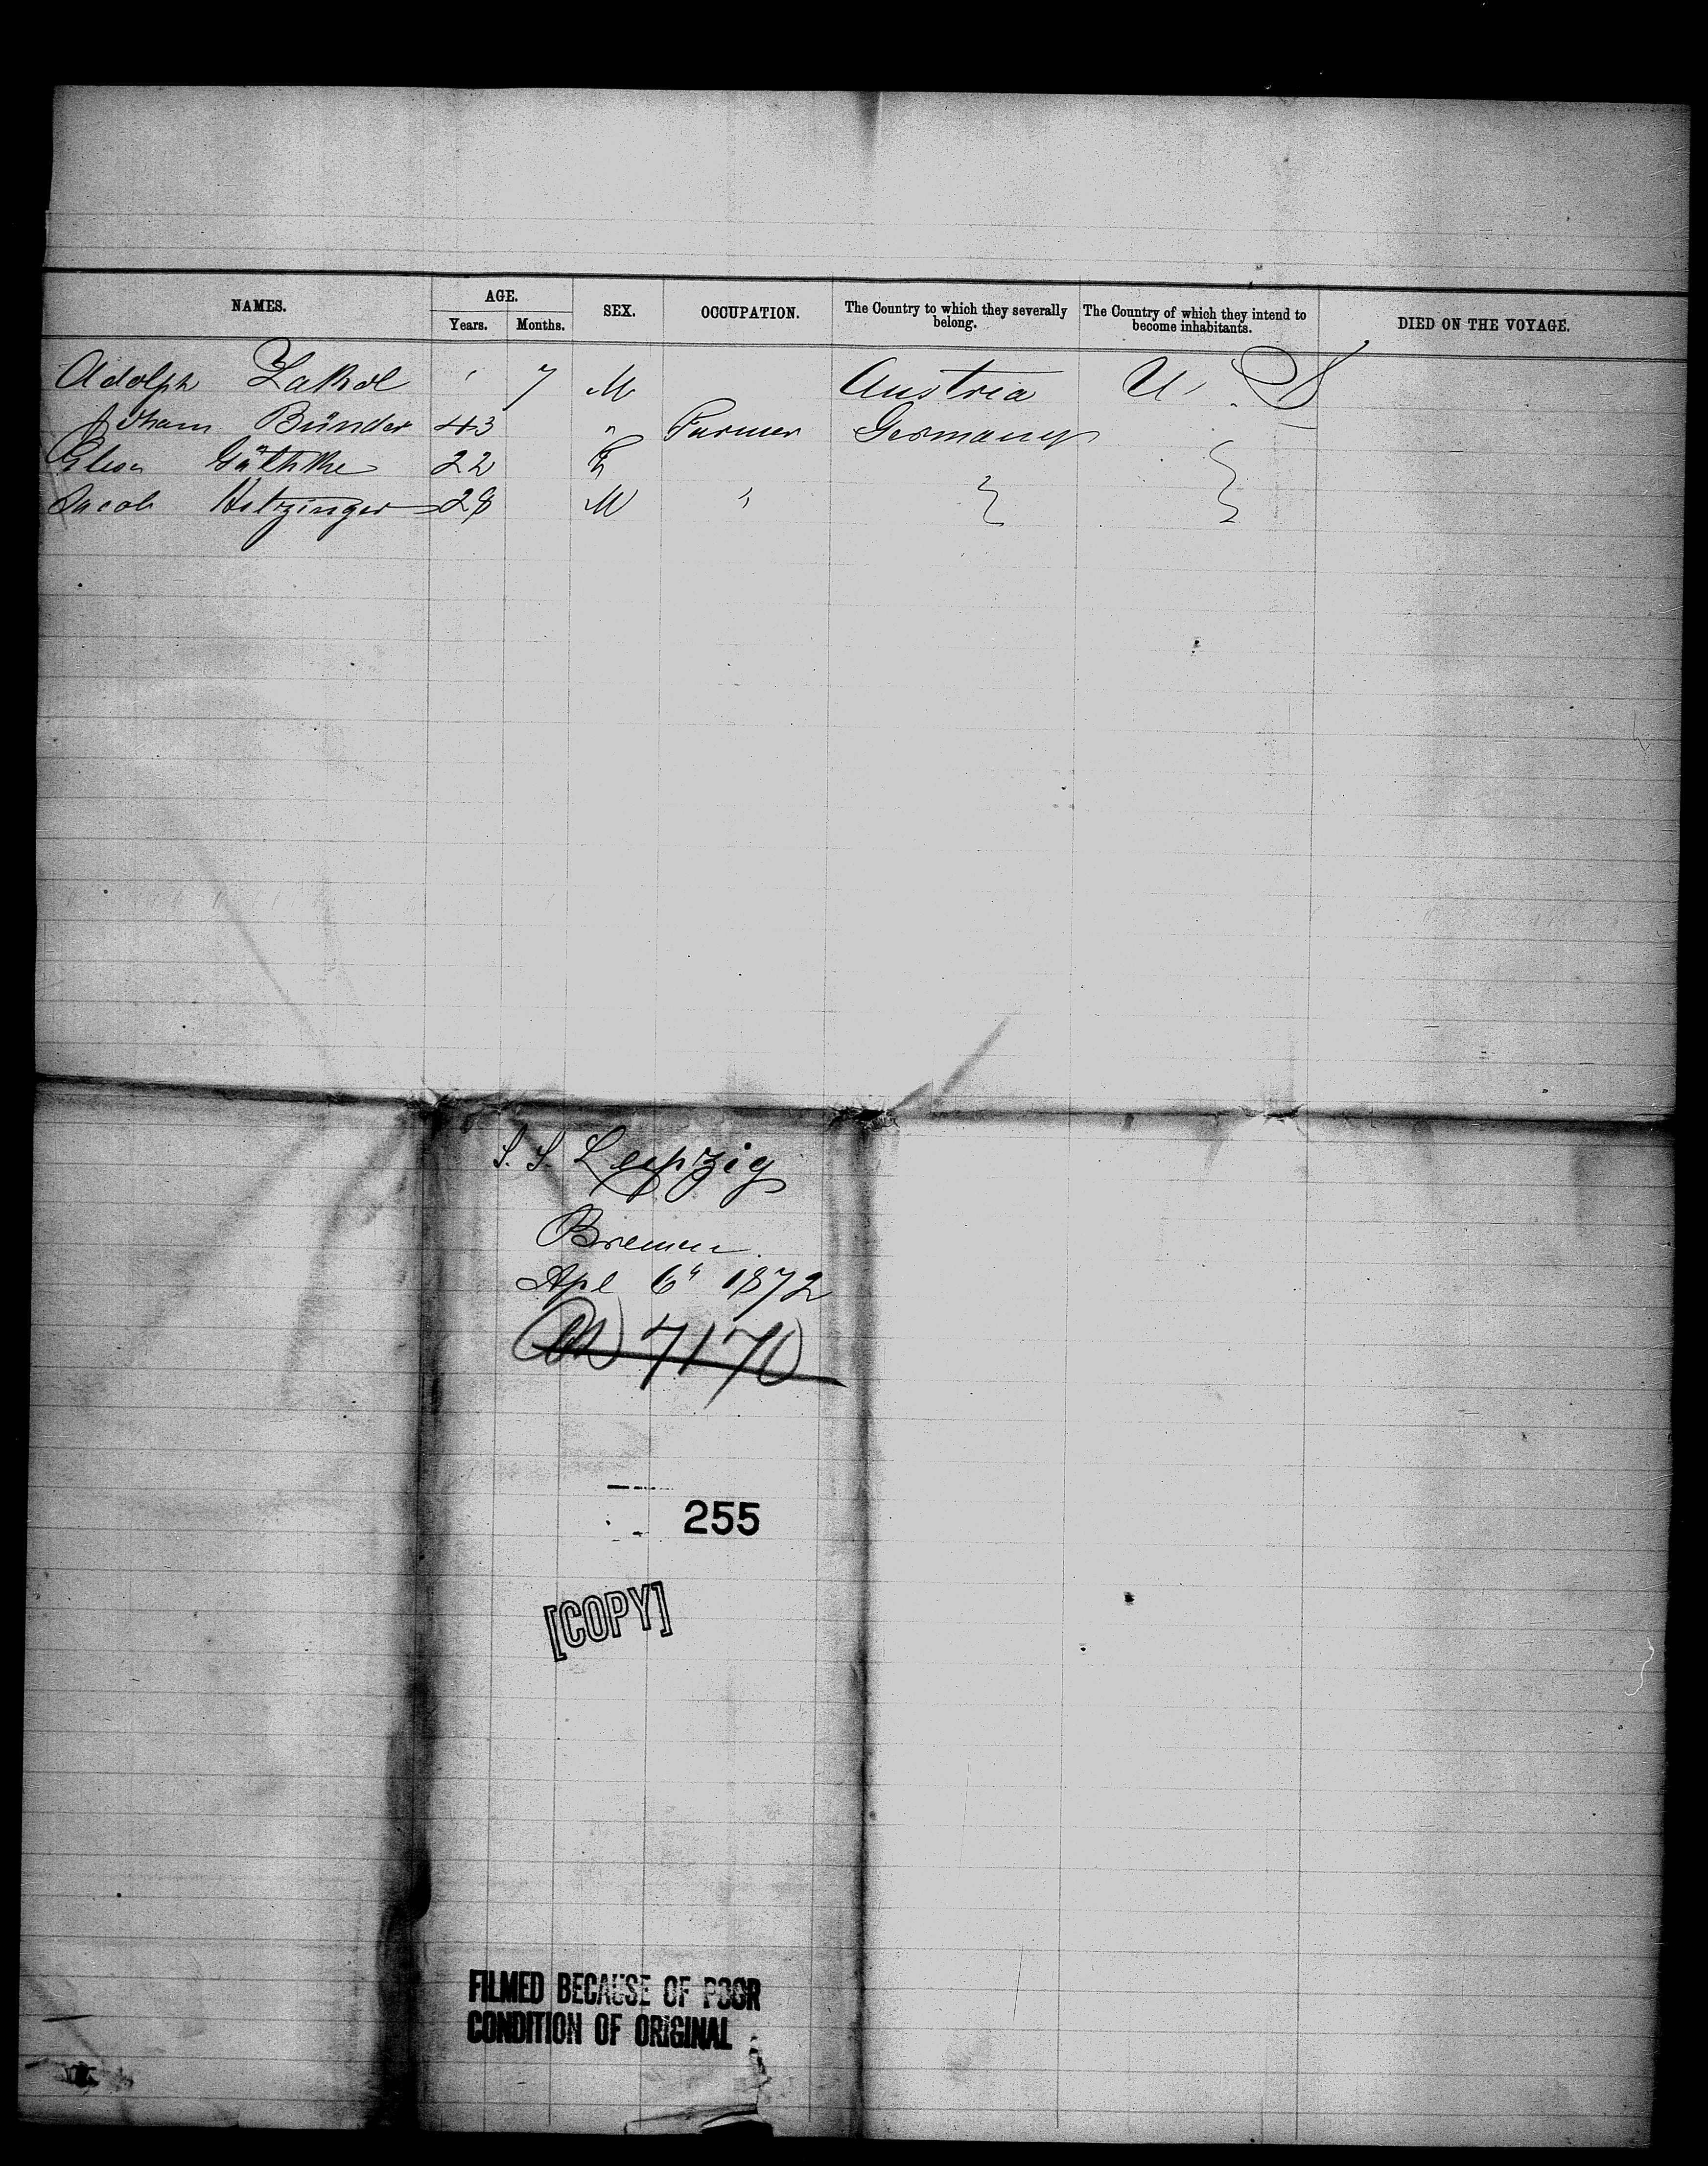 NAMES. AGE. Years. Months. SEX. OCCUPATION. The Country to which they severally belong. The Country of which they intend to become inhabitants. DIED ON THE VOYAGE.
Adolph 7 M Austria U. S.
Johann Bünder 43 " Farmer Germany
Elise Gäthke 22 F
Jacob Hitzinger 28 M "
S. S. Leipzig
Bremen
Apl 6" 1872
7170
255
[COPY]
FILMED BECAUSE OF POOR
CONDITION OF ORIGINAL